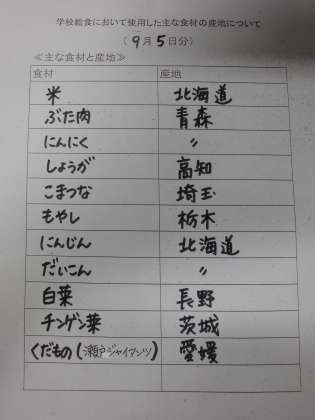 学校給食において使用した主な食材の産地について
(9月5日分)
≪主な食材と産地≫
食材 産地
米 北海道
ぶた肉 青森
にんにく 〃
しょうが 高知
こまつな 埼玉
もやし 栃木
にんじん 北海道
だいこん 〃
白菜 長野
チンゲン菜 茨城
くだもの(瀬戸ジャイアンツ) 愛媛